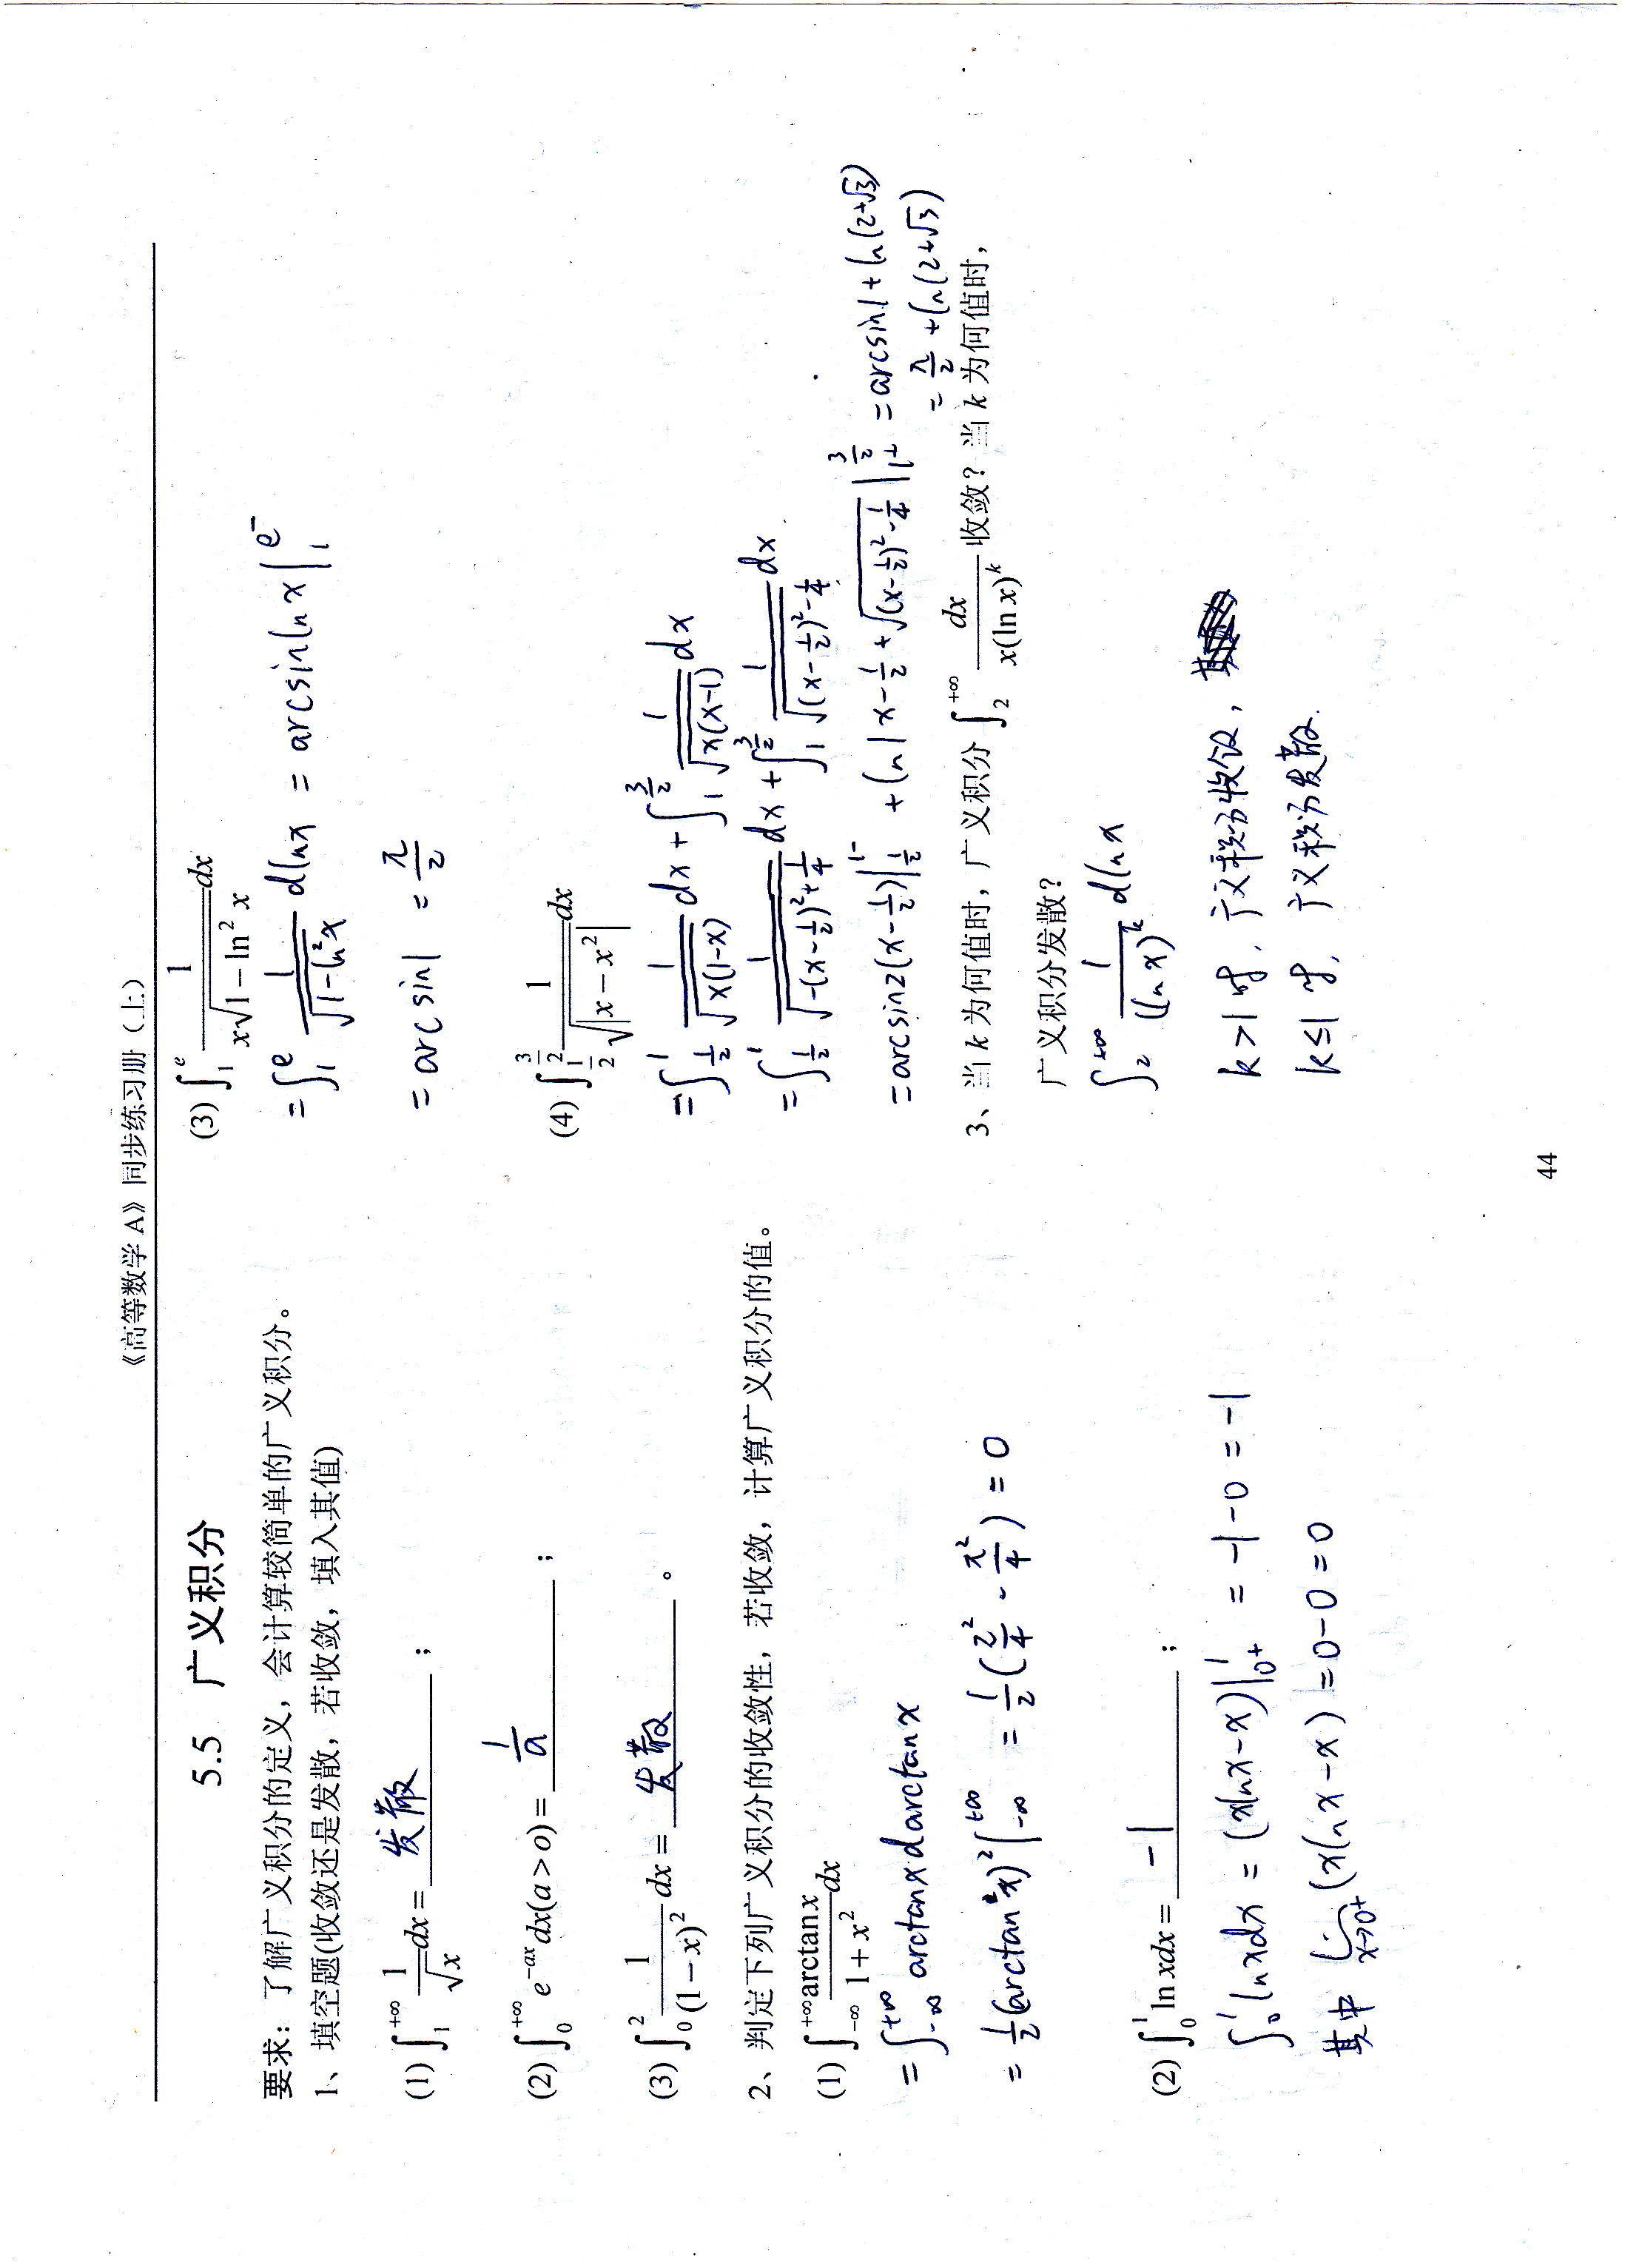 《高等数学 A》同步练习册（上）
5.5 广义积分
要求：了解广义积分的定义，会计算较简单的广义积分。
1、填空题(收敛还是发散，若收敛，填入其值)
(1) ∫_1^{+∞} 1/√x dx = 发散 ;
(2) ∫_0^{+∞} e^{-ax} dx(a > o) = 1/a ;
(3) ∫_0^2 1/(1-x)^2 dx = 发散 。
2、判定下列广义积分的收敛性，若收敛，计算广义积分的值。
(1) ∫_{-∞}^{+∞} arctan x/(1+x^2) dx
= ∫_{-∞}^{+∞} arctanx d arctanx
= 1/2 (arctan x)^2 |_{-∞}^{+∞} = 1/2 (π^2/4 - π^2/4) = 0
(2) ∫_0^1 ln xdx = -1 ;
∫_0^1 lnxdx = (xlnx-x)|_{0+}^1 = -1-0 = -1
其中 lim_{x→0+} (xlnx-x) = 0-0 = 0
(3) ∫_1^e 1/(x√(1-ln^2 x)) dx
= ∫_1^e 1/√(1-ln^2x) dlnx = arcsinlnx |_1^{e^-}
= arcsin1 = π/2
(4) ∫_{1/2}^{3/2} 1/√|x-x^2| dx
= ∫_{1/2}^1 1/√(x(1-x)) dx + ∫_1^{3/2} 1/√(x(x-1)) dx
= ∫_{1/2}^1 1/√(-(x-1/2)^2+1/4) dx + ∫_1^{3/2} 1/√((x-1/2)^2-1/4) dx
= arcsin2(x-1/2)|_{1/2}^{1^-} + ln|x-1/2+√((x-1/2)^2-1/4)|_{1^+}^{3/2} = arcsin1 + ln(2+√3)
= π/2 + ln(2+√3)
3、当 k 为何值时，广义积分 ∫_2^{+∞} dx/(x(ln x)^k) 收敛？当 k 为何值时，
广义积分发散？
∫_2^{+∞} 1/(lnx)^k dlnx
k>1时，广义积分收敛，
k≤1时，广义积分发散.
44